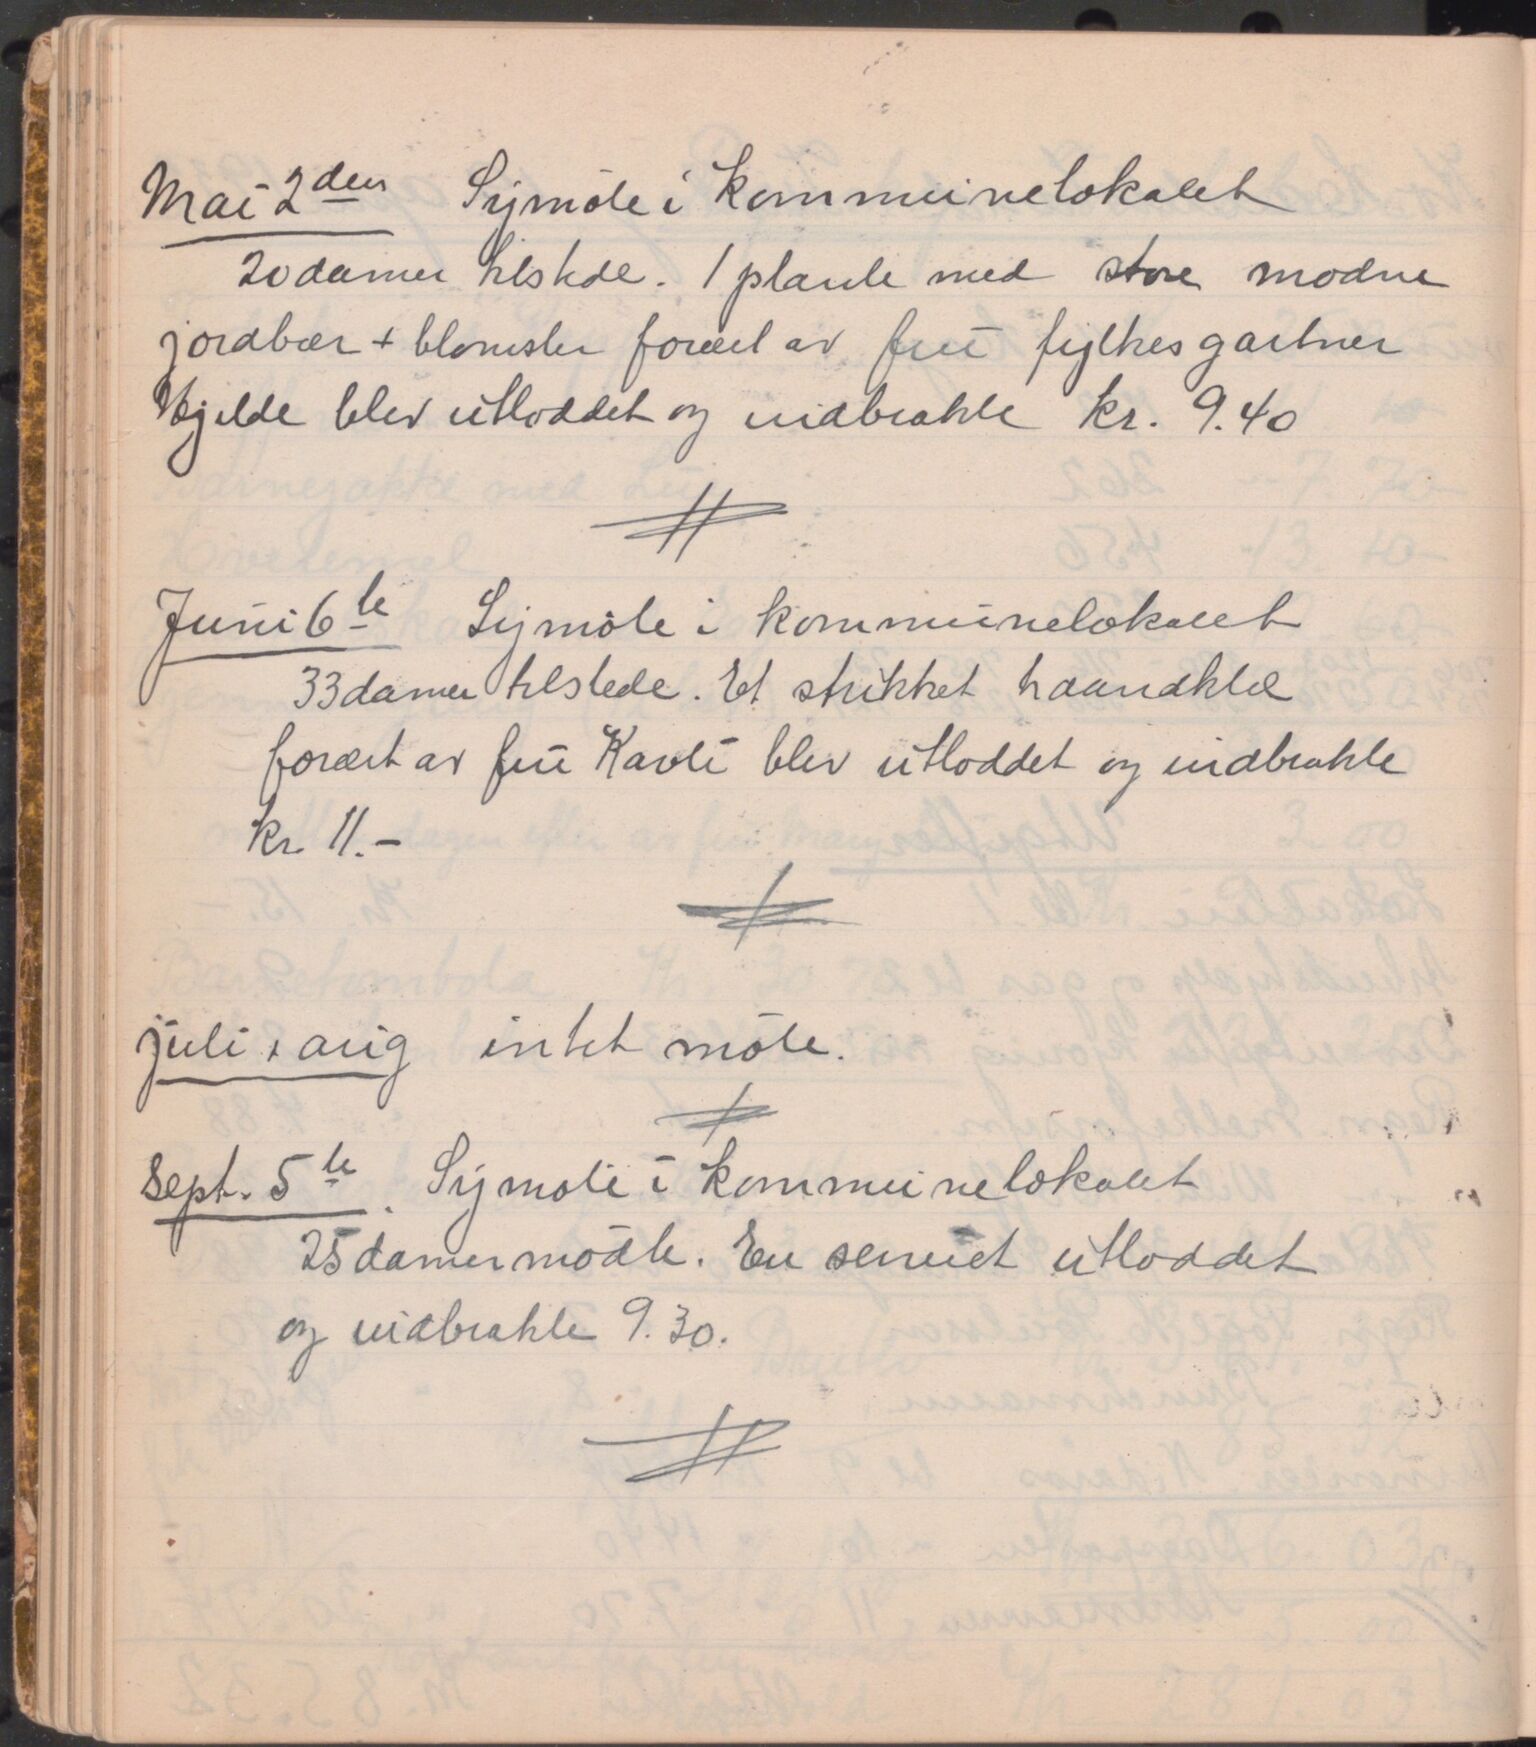 Mai 2den Symöte i kommunelokalet
20 damer tilstede. 1 plante med store modne
jordbær + blomster foræret av fru fylkesgartner
Kjelde blev utloddet og indbrakte kr. 9.40
Juni 6te Symöte i kommunelokalet
33 damer tilstede. Et strikket haandklæ
foræret av fru Kavli blev utloddet og indbrakte
kr. 11.-
juli + aug intet möte.
Sept. 5te Symöte i kommunelokalet
25 damer mödte. En serviet utloddet
og indbrakte 9.30.